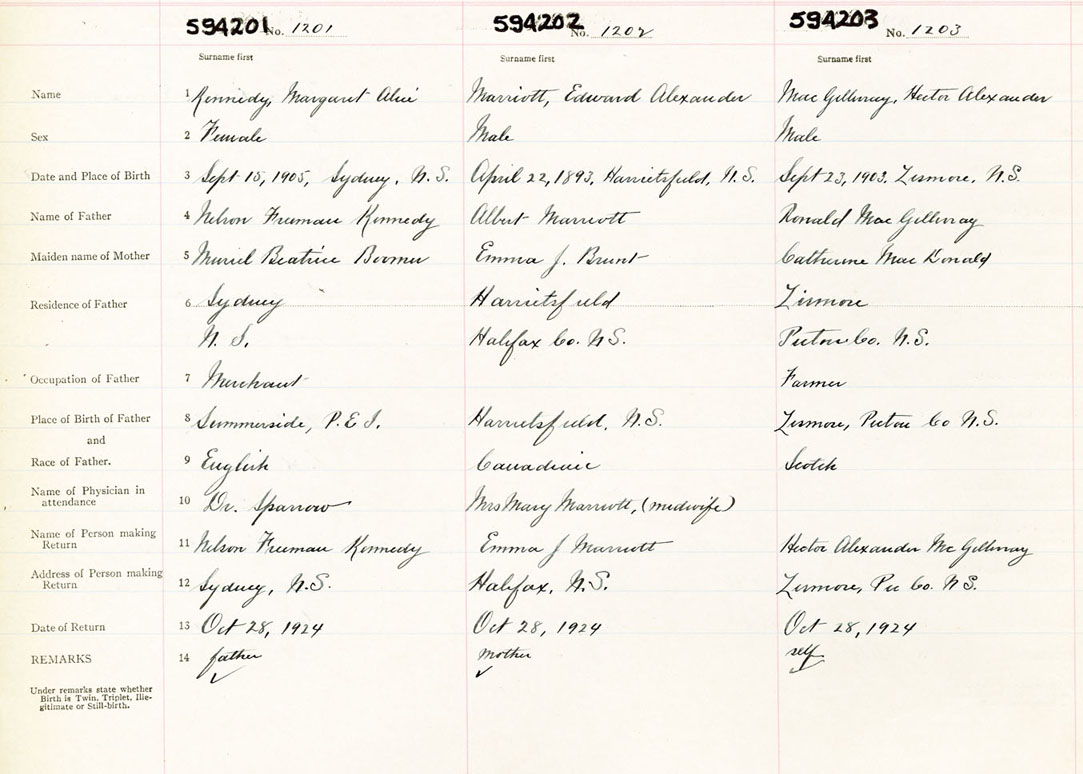 594201 No. 1201 594202 No. 1202 594203 No. 1203
Surname first Surname first Surname first
Name 1 Kennedy, Margaret Alice Marriott, Edward Alexander Mac Gillivray, Hector Alexander
Sex 2 Female Male Male
Date and Place of Birth 3 Sept 15, 1905, Sydney, N.S. April 22, 1893, Harrietsfield, N.S. Sept 23, 1903, Lismore, N.S.
Name of Father 4 Nelson Freeman Kennedy Albert Marriott Ronald Mac Gillivray
Maiden name of Mother 5 Muriel Beatrice Boomer Emma J. Brunt Catherine Mac Donald
Residence of Father 6 Sydney Harrietsfield Lismore
N. S. Halifax Co. N.S. Pictou Co. N.S.
Occupation of Father 7 Merchant Farmer
Place of Birth of Father 8 Summerside, P.E.I. Harrietsfield, N.S. Lismore, Pictou Co N.S.
and
Race of Father. 9 English Canadian Scotch
Name of Physician in
attendance 10 Dr. Sparrow Mrs Mary Marriott, (midwife)
Name of Person making
Return 11 Nelson Freeman Kennedy Emma J Marriott Hector Alexander Mc Gillivray
Address of Person making
Return 12 Sydney, N.S. Halifax, N.S. Lismore, Pic Co. N.S.
Date of Return 13 Oct 28, 1924 Oct 28, 1924 Oct 28, 1924
REMARKS 14 father mother self
Under remarks state whether
Birth is Twin, Triplet, Ille-
gitimate or Still-birth.